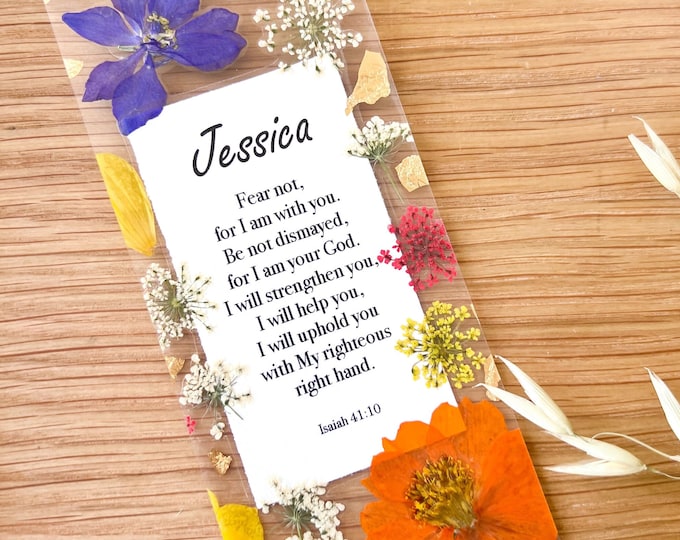 Jessica
Fear not,
for I am with you.
Be not dismayed,
for I am your God.
I will strengthen you,
I will help you,
I will uphold you
with My righteous
right hand.
Isaiah 41:10